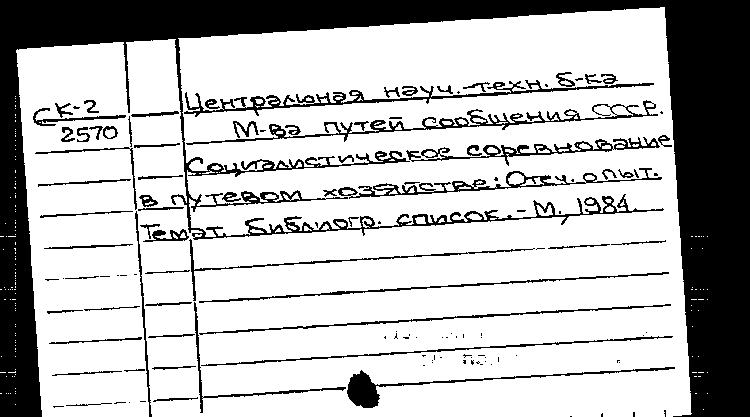 СК-2
2570
Центральная науч.-техн. б-ка
М-ва путей сообщения СССР.
Социалистическое соревнование
в путевом хозяйстве: Отеч. опыт.
Темат. библиогр. список.-М., 1984.